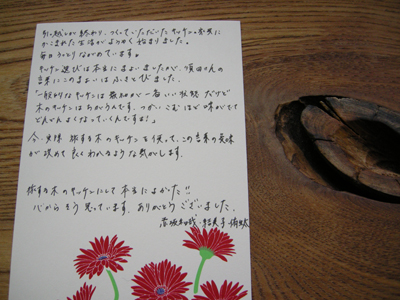 引っ越しが終わり、つくっていただいたキッチンの空気に
かこまれた生活がようやく始まりました。
毎日うっとりながめています。
キッチン選びは本当にまよいましたが、須田さんの
言葉にこのまよいはふきとびました。
「一般的なキッチンは最初が一番いい状態だけど
木のキッチンはちがうんです。つかいこむほど味がでて
どんどんよくなっていくんですよ！」
今、実際 旅する木のキッチンを使って、この言葉の意味
が改めて良くわかるような気がします。
旅する木のキッチンにして本当によかった!!
心からそう思っています。ありがとうございました。